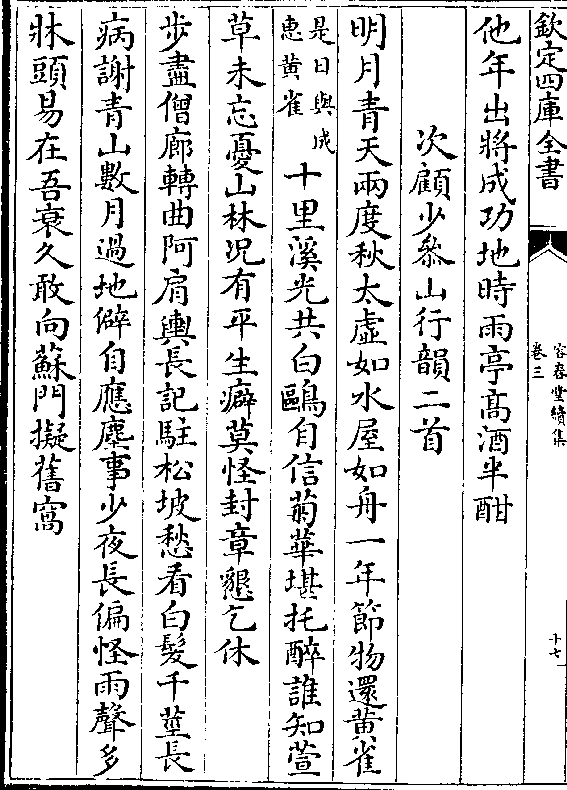 欽定四庫全書
容春堂續集
卷三
十七
他年出將成功地時雨亭高酒半酣
次顧少叅山行韻二首
明月青天兩度秋太虛如水屋如舟一年節物還黃雀
是日與成
惠黃雀
十里溪光共白鷗自信菊華堪托醉誰知萱
草未忘憂山林况有平生癖莫怪封章懇乞休
步盡僧廊轉曲阿肩輿長記駐松坡愁看白髮千莖長
病謝青山數月過地僻自應塵事少夜長偏怪雨聲多
牀頭易在吾衰久敢向蘇門擬舊窩